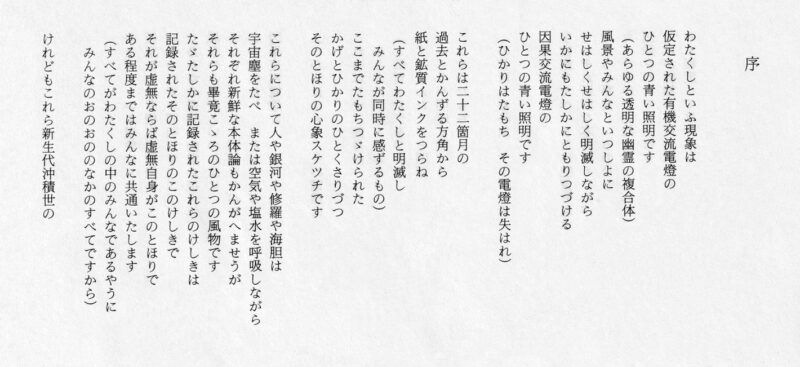 序
わたくしといふ現象は
仮定された有機交流電燈の
ひとつの青い照明です
(あらゆる透明な幽霊の複合体)
風景やみんなといつしよに
せはしくせはしく明滅しながら
いかにもたしかにともりつづける
因果交流電燈の
ひとつの青い照明です
(ひかりはたもち　その電燈は失はれ)
これらは二十二箇月の
過去とかんずる方角から
紙と鉱質インクをつらね
(すべてわたくしと明滅し
みんなが同時に感ずるもの)
ここまでたもちつゞけられた
かげとひかりのひとくさりづつ
そのとほりの心象スケツチです
これらについて人や銀河や修羅や海胆は
宇宙塵をたべ　または空気や塩水を呼吸しながら
それぞれ新鮮な本体論もかんがへませうが
それらも畢竟こゝろのひとつの風物です
たゞたしかに記録されたこれらのけしきは
記録されたそのとほりのこのけしきで
それが虚無ならば虚無自身がこのとほりで
ある程度まではみんなに共通いたします
(すべてがわたくしの中のみんなであるやうに
みんなのおのおののなかのすべてですから)
けれどもこれら新生代沖積世の